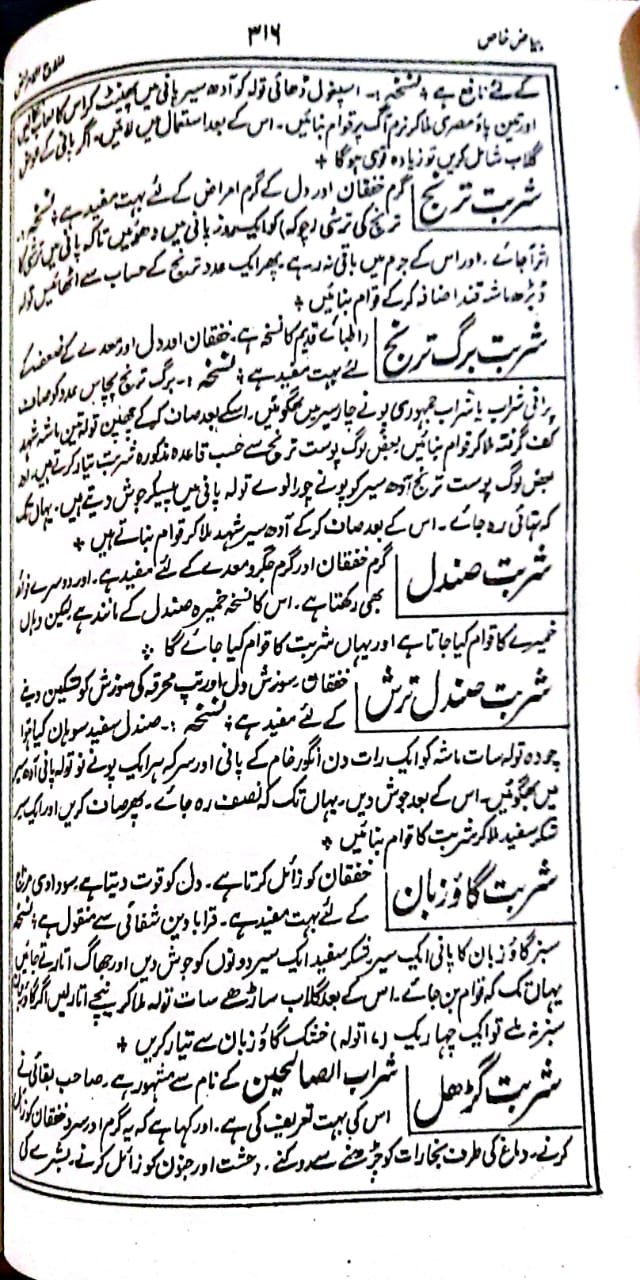 بیاض خاص ۳۱۶
کے لئے نافع ہے ÷ نسخہ :۔ اسپغول ڈھائی تولہ کو آدھ سیر پانی میں پھینٹ کر اس کا لعاب نکالیں
اور تین پاؤ مصری ملا کر نرم آگ پر قوام بنائیں۔ اس کے بعد استعمال میں لائیں۔ اگر پانی کے عوض
گلاب شامل کریں تو زیادہ قوی ہوگا ÷
شربت ترنج
گرم خفقان اور دل کے گرم امراض کے لئے بہت مفید ہے ÷ نسخہ :۔
ترنج کی ترشی (چوکہ) کو ایک روز پانی میں دھوئیں تاکہ پانی میں ترشی کا
اثر آجائے۔ اور اس کے جرم میں باقی نہ رہے۔ پھر ایک عدد ترنج کے حساب سے اٹھائیں تولہ
ڈیڑھ ماشہ قند اضافہ کرکے قوام بنائیں ÷
شربت برگ ترنج
اطبائے قدیم کا نسخہ ہے۔ خفقان اور دل اور معدے کے ضعف کے
لئے بہت مفید ہے ÷ نسخہ :۔ برگ ترنج پچاس عدد کو صاف
پرانی شراب یا شراب جمہوری پونے چار سیر میں بھگوئیں۔ اسکے بعد صاف کرکے چھبیس تولہ تین ماشہ شہد
کف گرفتہ ملا کر قوام بنائیں۔ بعض لوگ پوست ترنج سے حسب قاعدہ مذکورہ شربت تیار کرتے ہیں۔ اور
بعض لوگ پوست ترنج آدھ سیر کو پونے چورانوے تولہ پانی میں پیسکر جوش دیتے ہیں۔ یہاں تک
کہ تہائی رہ جائے۔ اس کے بعد صاف کرکے آدھ سیر شہد ملا کر قوام بناتے ہیں ÷
شربت صندل
گرم خفقان اور گرم جگر و معدے کے لئے مفید ہے۔ اور دوسرے فوائد
بھی رکھتا ہے۔ اس کا نسخہ خمیرہ صندل کے مانند ہے لیکن وہاں
خمیرے کا قوام کیا جاتا ہے اور یہاں شربت کا قوام کیا جائے گا ÷
شربت صندل ترش
خفقان سوزش دل اور تپ محرقہ کی سوزش کو تسکین دینے
کے لئے مفید ہے ÷ نسخہ :۔ صندل سفید سوہان کیا ہوا
چودہ تولہ سات ماشہ کو ایک رات دن انگور خام کے پانی اور سرکہ ہر ایک پونے نو تولہ پانی آدھ سیر
میں بھگوئیں۔ اس کے بعد جوش دیں۔ یہاں تک کہ نصف رہ جائے۔ پھر صاف کریں اور ایک سیر
شکر سفید ملا کر شربت کا قوام بنائیں ÷
شربت گاؤزبان
خفقان کو زائل کرتا ہے۔ دل کو قوت دیتا ہے۔ سوداوی مزاج
کے لئے بہت مفید ہے۔ قرابادین شفائی سے منقول ہے ÷ نسخہ
سبز گاؤزبان کا پانی ایک سیر شکر سفید ایک سیر دونوں کو جوش دیں اور جھاگ اتارتے جائیں
یہاں تک کہ قوام بن جائے۔ اس کے بعد گلاب ساڑھے سات تولہ ملا کر نیچے اتار لیں اگر گاؤزبان
سبز نہ ملے تو ایک چہاریک (۱۷ تولہ) خشک گاؤزبان سے تیار کریں ÷
شربت گڑھل
شراب الصالحین کے نام سے مشہور ہے۔ صاحب بقائی نے
اس کی بہت تعریف کی ہے۔ اور کہا ہے کہ یہ گرم اور سرد خفقان کو زائل
کرنے۔ دماغ کی طرف بخارات کو چڑھنے سے روکنے۔ دحشت اور جنون کو زائل کرنے۔ بشرے کی